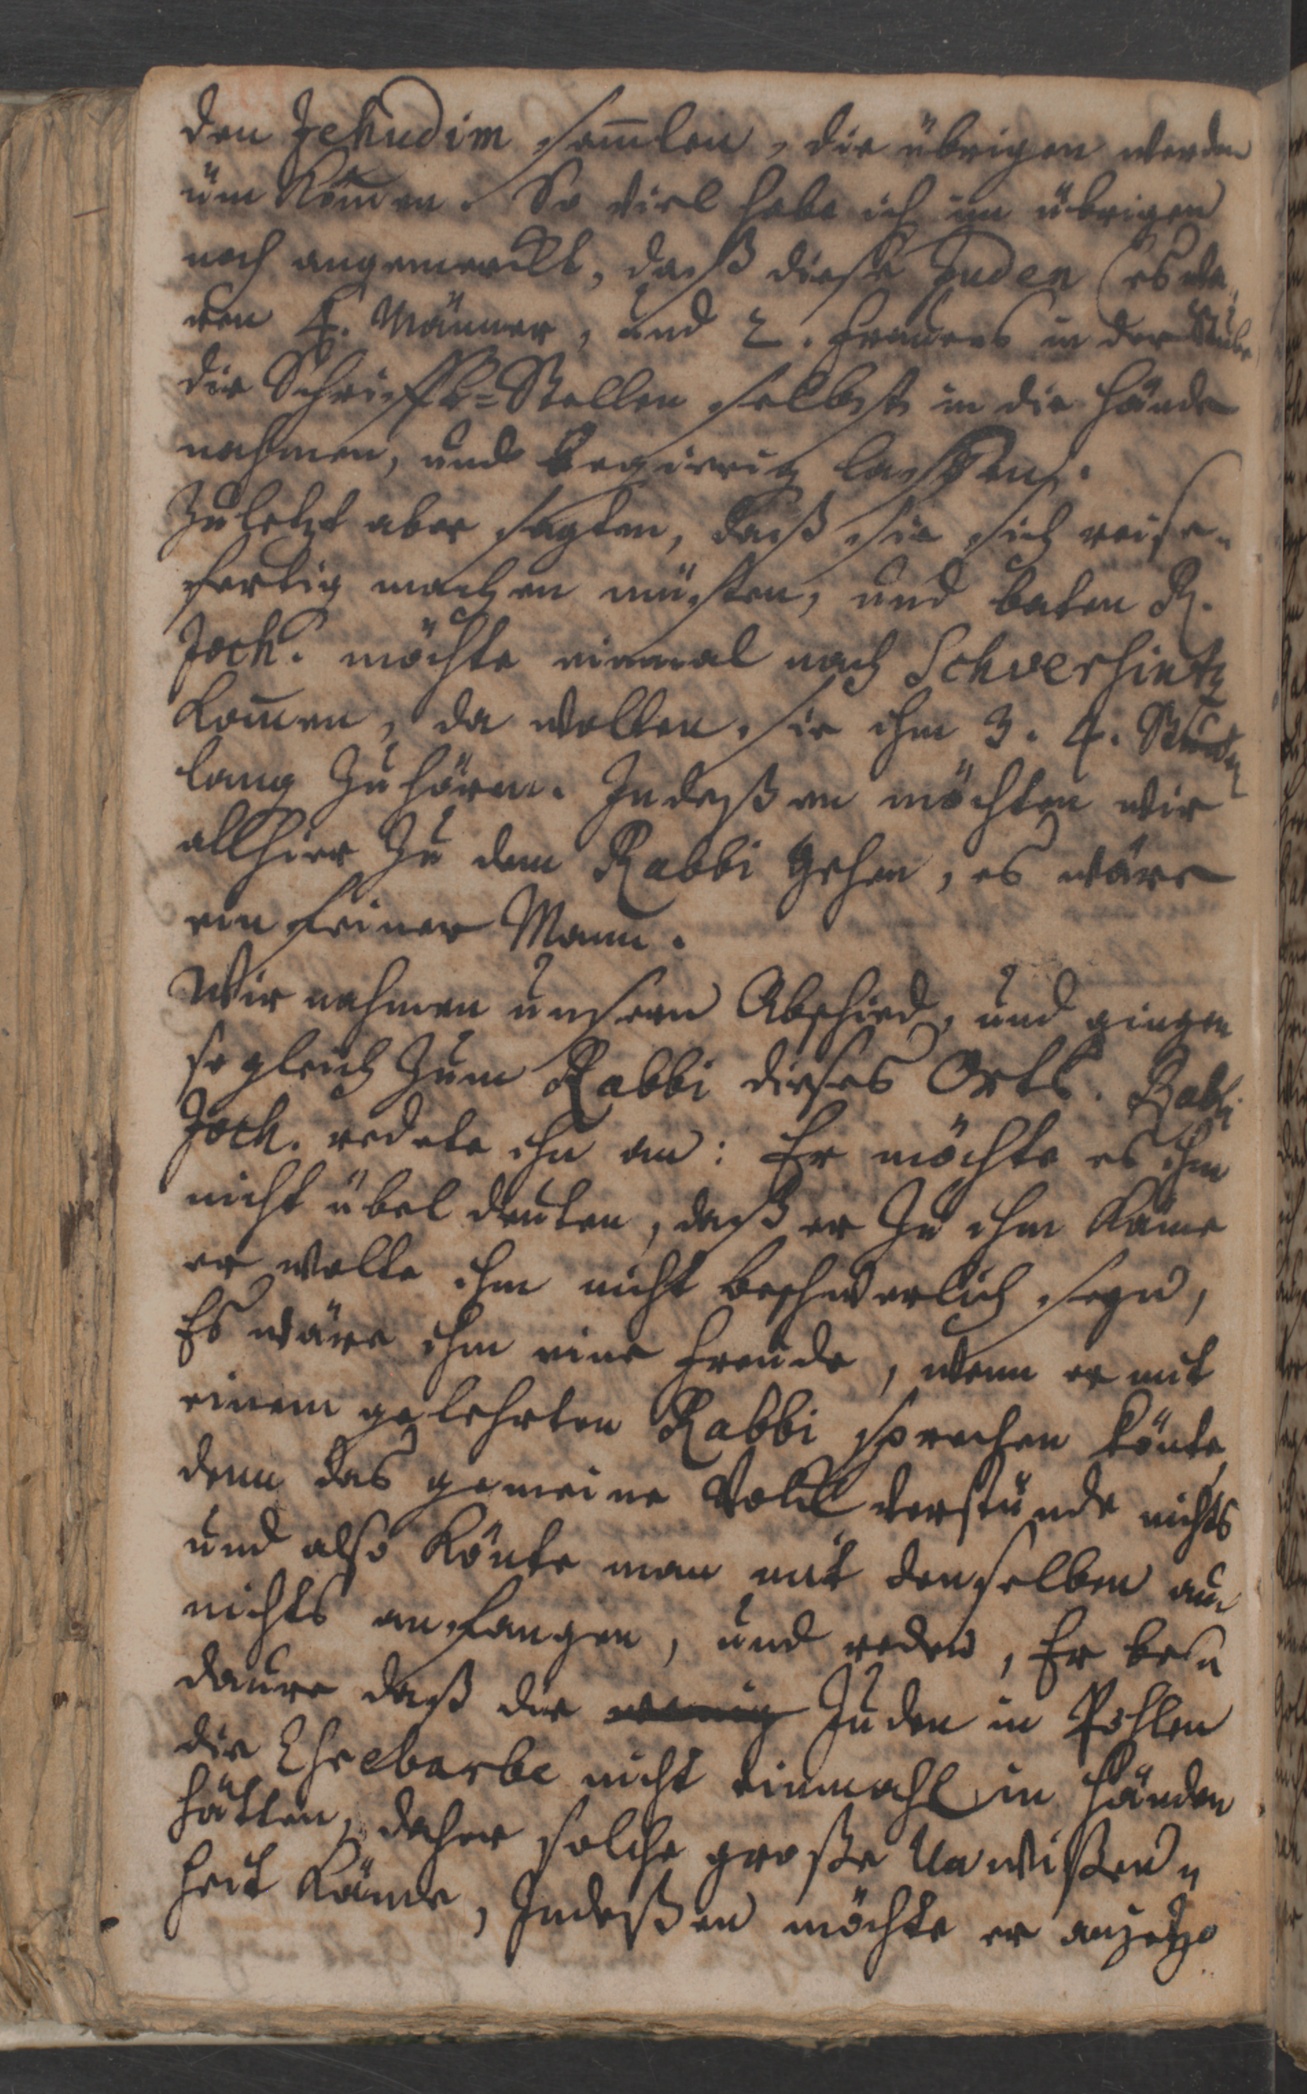 den Jehudim samlen, die übrigen werden
üm komen. So viel habe ich im übrigen
noch angemerckt, daß diese Juden (es wa„
ren 4. Männer, und 2. Frauens in der Stube
die Schrifft-Stellen selbst in die Hände
nahmen, und begierig lasen.
Zuletzt aber sagten, daß sie sich reise„
fertig machen müsten, und baten R.
Joch. möchte einmal nach Schversintz
komen, da wolten sie ihm 3. 4. Stunden
lang zuhören. Indeßen möchten wir
allhier zu dem Rabbi gehen, es wäre
ein feiner Mann.
Wir nahmen unsern Abschied, und gingen
so gleich zum Rabbi dieses Orts. Rabbi
Joch. redete ihn an: Er möchte es ihm
nicht übel deuten, daß er zu ihm käme
er wolte ihm nicht beschwerlich seyn,
Es wäre ihm eine Freude, wenn er mit
einem gelehrten Rabbi sprechen könte,
denn das gemeine Volck verstünde nichts
und also könte man mit denselben auch
nichts anfangen, und reden, Er be„
daure daß die Juden in Pohlen
die Esrebarbe nicht einmahl in Händen
hätten, daher solche große Unwißen„
heit käme, Indeßen möchte er anjetzo